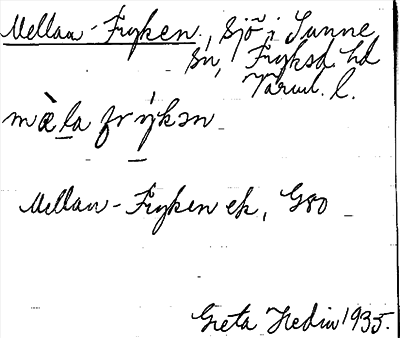 Mellan-Fryken, sjö i Sunne
sn, Fryksd. hd
Värml. l.
mæ̀la frýkən
Mellan-Fryken ek, G80
Greta Hedin 1935.